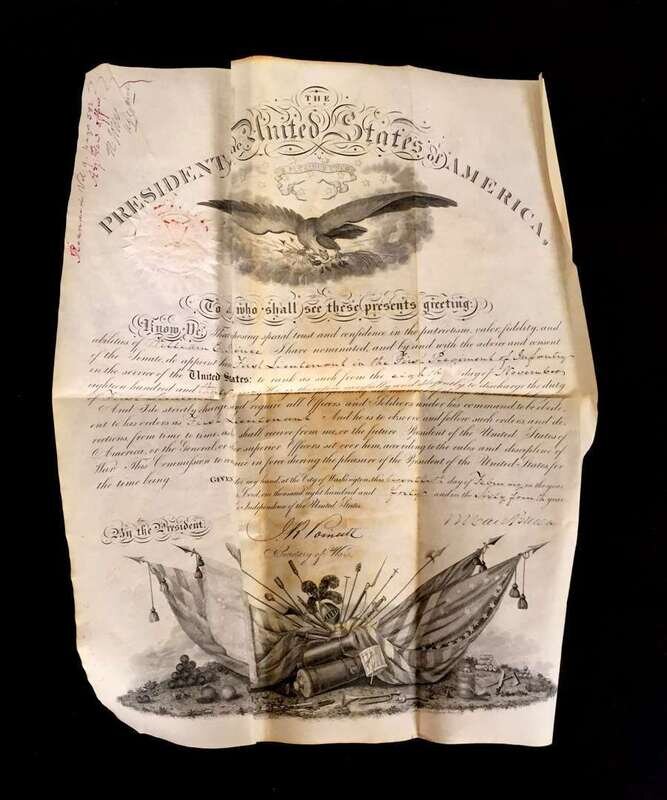 THE
PRESIDENT of the United States of AMERICA,
To all who shall see these presents greeting:
Know Ye, That reposing special trust and confidence in the patriotism, valor, fidelity, and
abilities of I have nominated, and by and with the advice and consent
of the Senate, do appoint him First Lieutenant in the First Regiment of Infantry
in the service of the United States: to rank as such from the day of November
eighteen hundred and to discharge the duty
of First Lieutenant
And I do strictly charge and require all Officers and Soldiers under his command to be obedi-
ent to his orders as First Lieutenant And he is to observe and follow such orders and di-
rections from time to time, as he shall receive from me, or the future President of the United States of
America, or the General or other superior Officers set over him, according to the rules and discipline of
War. This Commission to continue in force during the pleasure of the President of the United States for
the time being. GIVEN under my hand, at the City of Washington, this day of February in the year
of our Lord, one thousand eight hundred and forty and in the sixty fourth year
of the Independence of the United States.
By the President,
M Van Buren
J. R. Poinsett
Secretary of War.